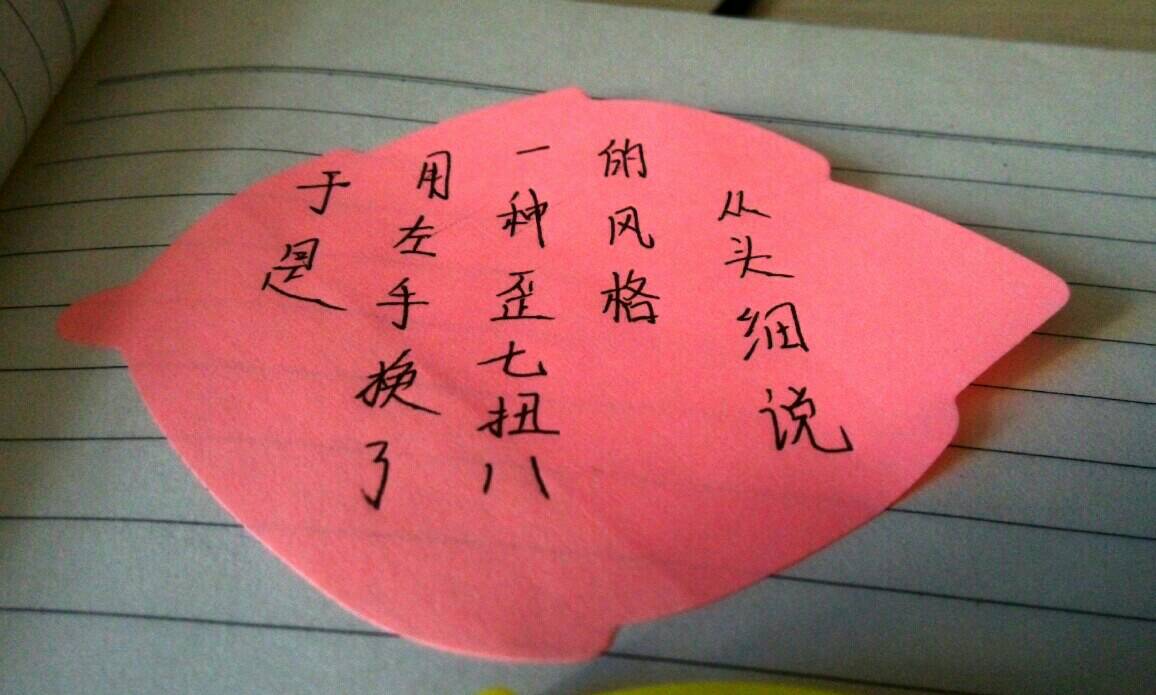 于是
用左手换了
一种歪七扭八
的风格
从头细说